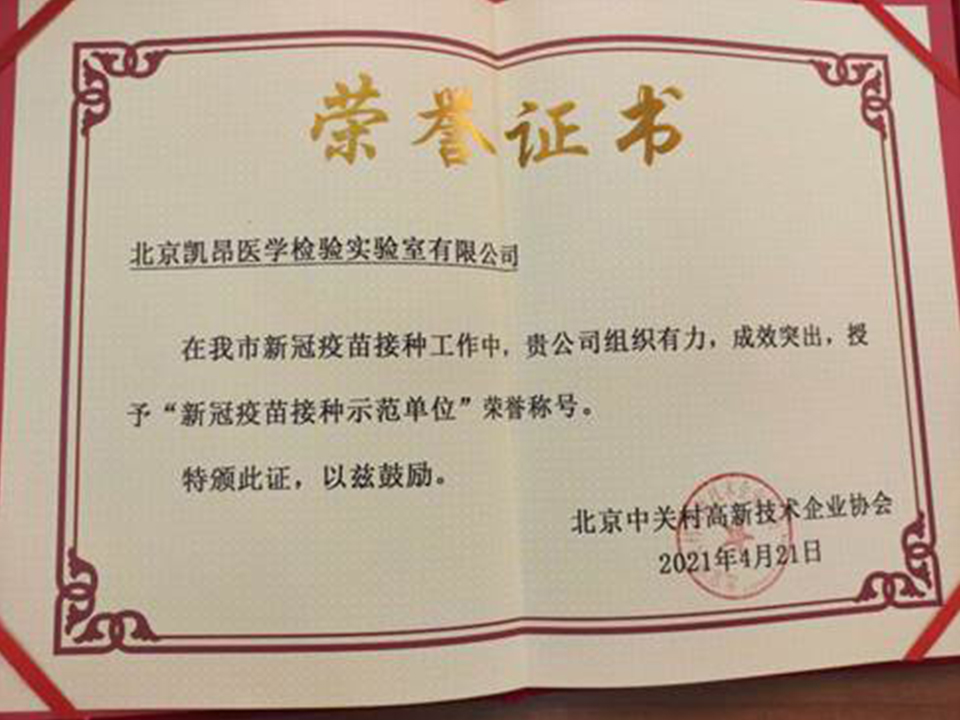 荣誉证书
北京凯昂医学检验实验室有限公司
在我市新冠疫苗接种工作中，贵公司组织有力，成效突出，授
予“新冠疫苗接种示范单位”荣誉称号。
特颁此证，以兹鼓励。
北京中关村高新技术企业协会
2021年4月21日